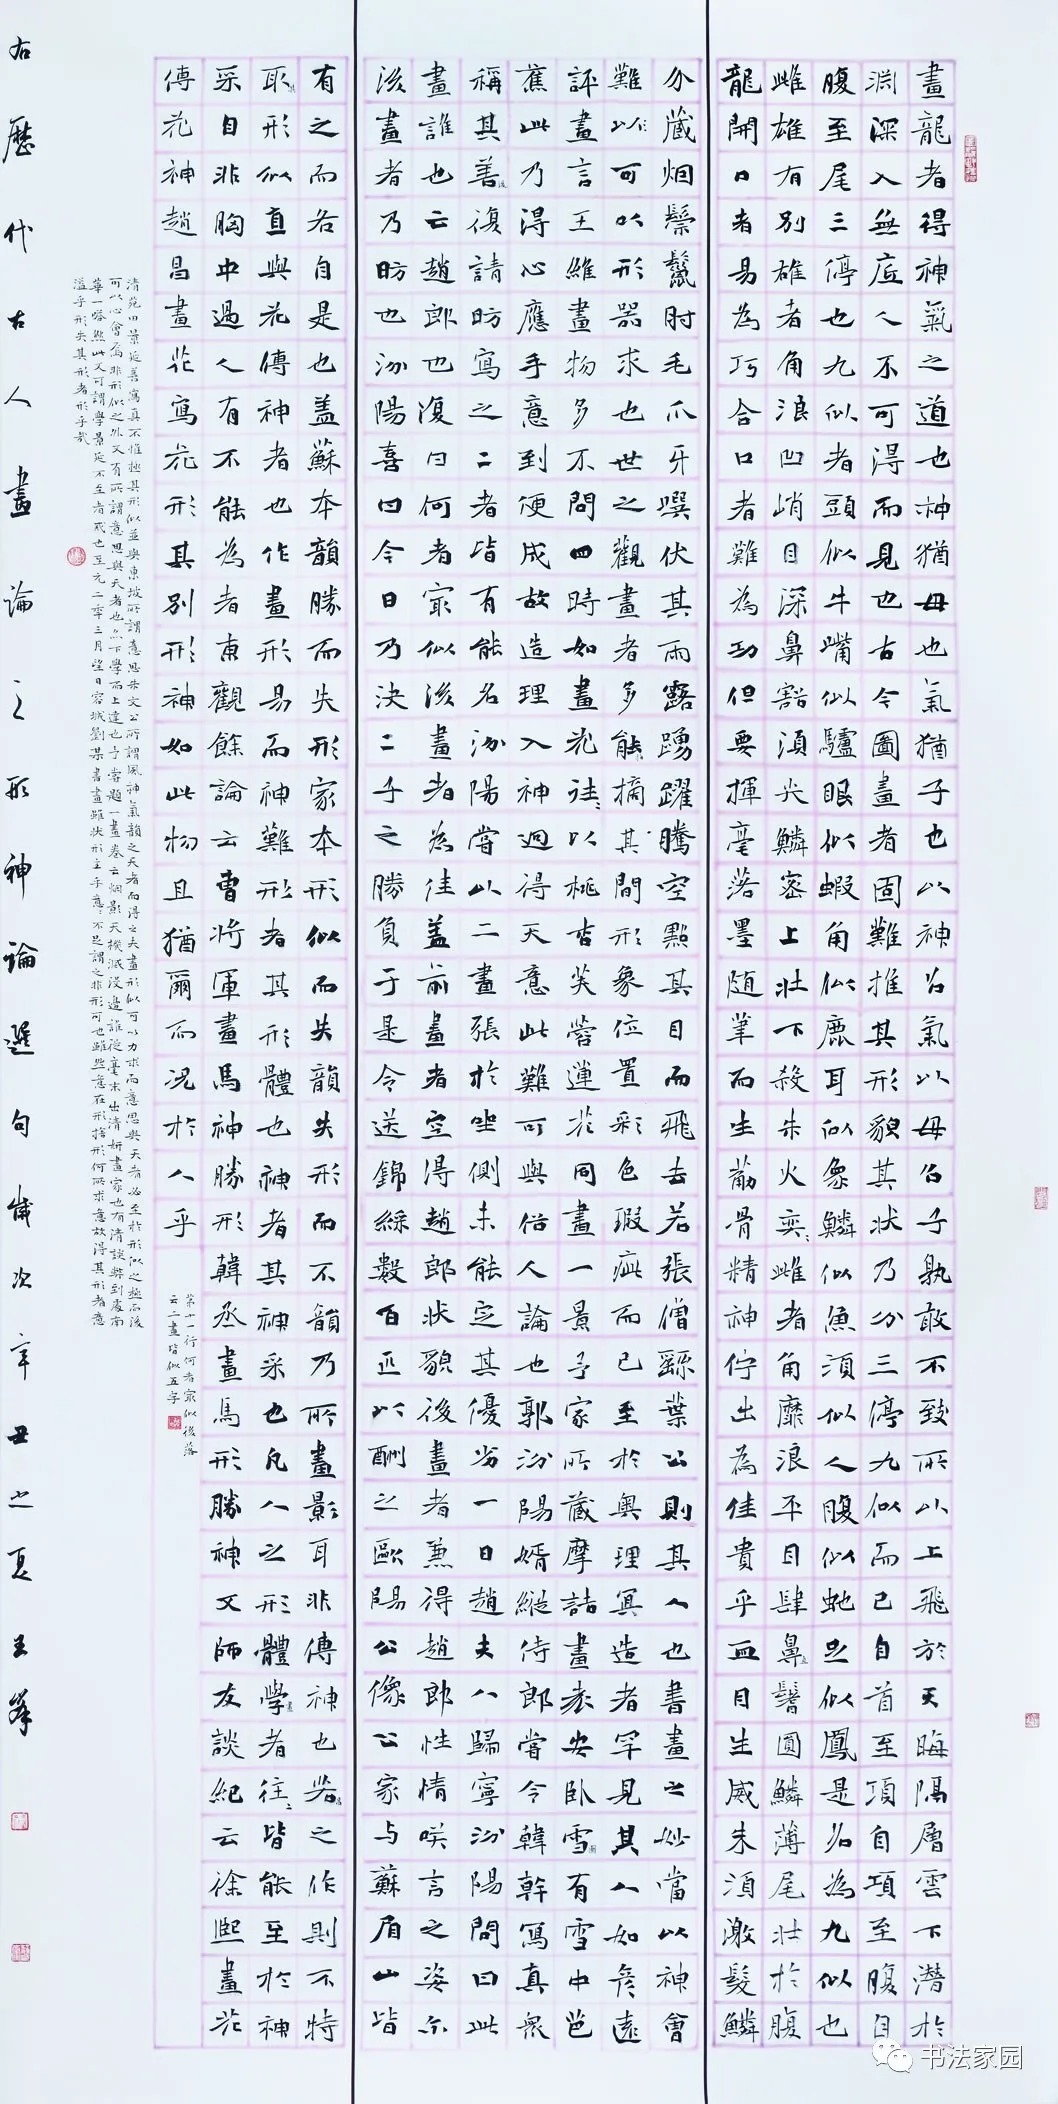 畫龍者得神氣之道也神猶母也氣猶子也以神召氣以母召子孰敢不致所以上飛於天晦隔層雲下潛於
淵深入無底人不可得而見也古今圖畫者固難推其形貌其狀乃分三停九似而已自首至項自項至腹自
腹至尾三停也九似者頭似牛嘴似驢眼似蝦角似鹿耳似象鱗似魚須似人腹似虵足似鳳是名為九似也
雌雄有別雄者角浪凹峭目深鼻豁須尖鱗密上壯下殺朱火奕〻雌者角靡浪平目肆鼻直髻圓鱗薄尾壯於腹
龍開口者易為巧合口者難為功但要揮毫落墨隨筆而生筋骨精神佇出為佳貴乎血目生威朱須激髮鱗
分藏烟鬃鬣肘毛爪牙噀伏其雨露踴躍騰空點其目而飛去若張僧繇葉公則其人也書畫之妙當以神會
難以可以形器求也世之觀畫者多能摘其間形象位置彩色瑕疵而已至於奧理冥造者罕見其人如彥遠
評畫言王維畫物多不問四時如畫花往〻以桃杏芙蓉蓮花同畫一景予家所藏摩詰畫袁安臥雪圖有雪中芭
蕉此乃得心應手意到便成故造理入神迥得天意此難可與俗人論也郭汾陽婿縱侍郎嘗令韓幹寫真眾
稱其善後復請昉寫之二者皆有能名汾陽嘗以二畫張於坐側未能定其優劣一日趙夫人歸寧汾陽問曰此
畫誰也云趙郎也復曰何者最似後畫者為佳蓋前畫者空得趙郎狀貌後畫者兼得趙郎性情咲言之姿尓
後畫者乃昉也汾陽喜曰今日乃決二子之勝負于是令送錦綵數百匹以酬之歐陽公像公家与蘇眉山皆
有之而各自是也蓋蘇本韻勝而失形家本形似而失韻失形而不韻乃所畫影耳非傳神也若昌之作則不特
取法形似直與花傳神者也作畫形易而神難形者其形體也神者其神采也凡人之形體學畫者往〻皆能至於神
采自非胸中過人有不能為者東觀餘論云曹將軍畫馬神勝形韓丞畫馬形勝神又師友談紀云徐熙畫花
傳花神趙昌畫花寫花形其別形神如此物且猶爾而況於人乎
第十一行何者最似後落
云二畫皆似五字
清苑田景延善寫真不惟極其形似並與東坡所謂意思朱文公所謂風神氣韻之天者而得之夫畫形似可以力求而意思與天者必至於形似之極而後
可以心會焉非形似之外又有所謂意思與天者也亦下學而上達也予嘗題一畫卷云烟影天機滅沒邊誰從毫末出清妍畫家也有清談弊到處南
華一嗒然此又可謂學景延不至者戒也至元二年三月望日容城劉某書畫雖狀形主乎意〻不足謂之非形可也雖然意在形捨形何所求意故得其形者意
溢乎形失其形者形乎哉
右歷代古人畫論之形神論選句歲次辛丑之夏王峰
书法家园